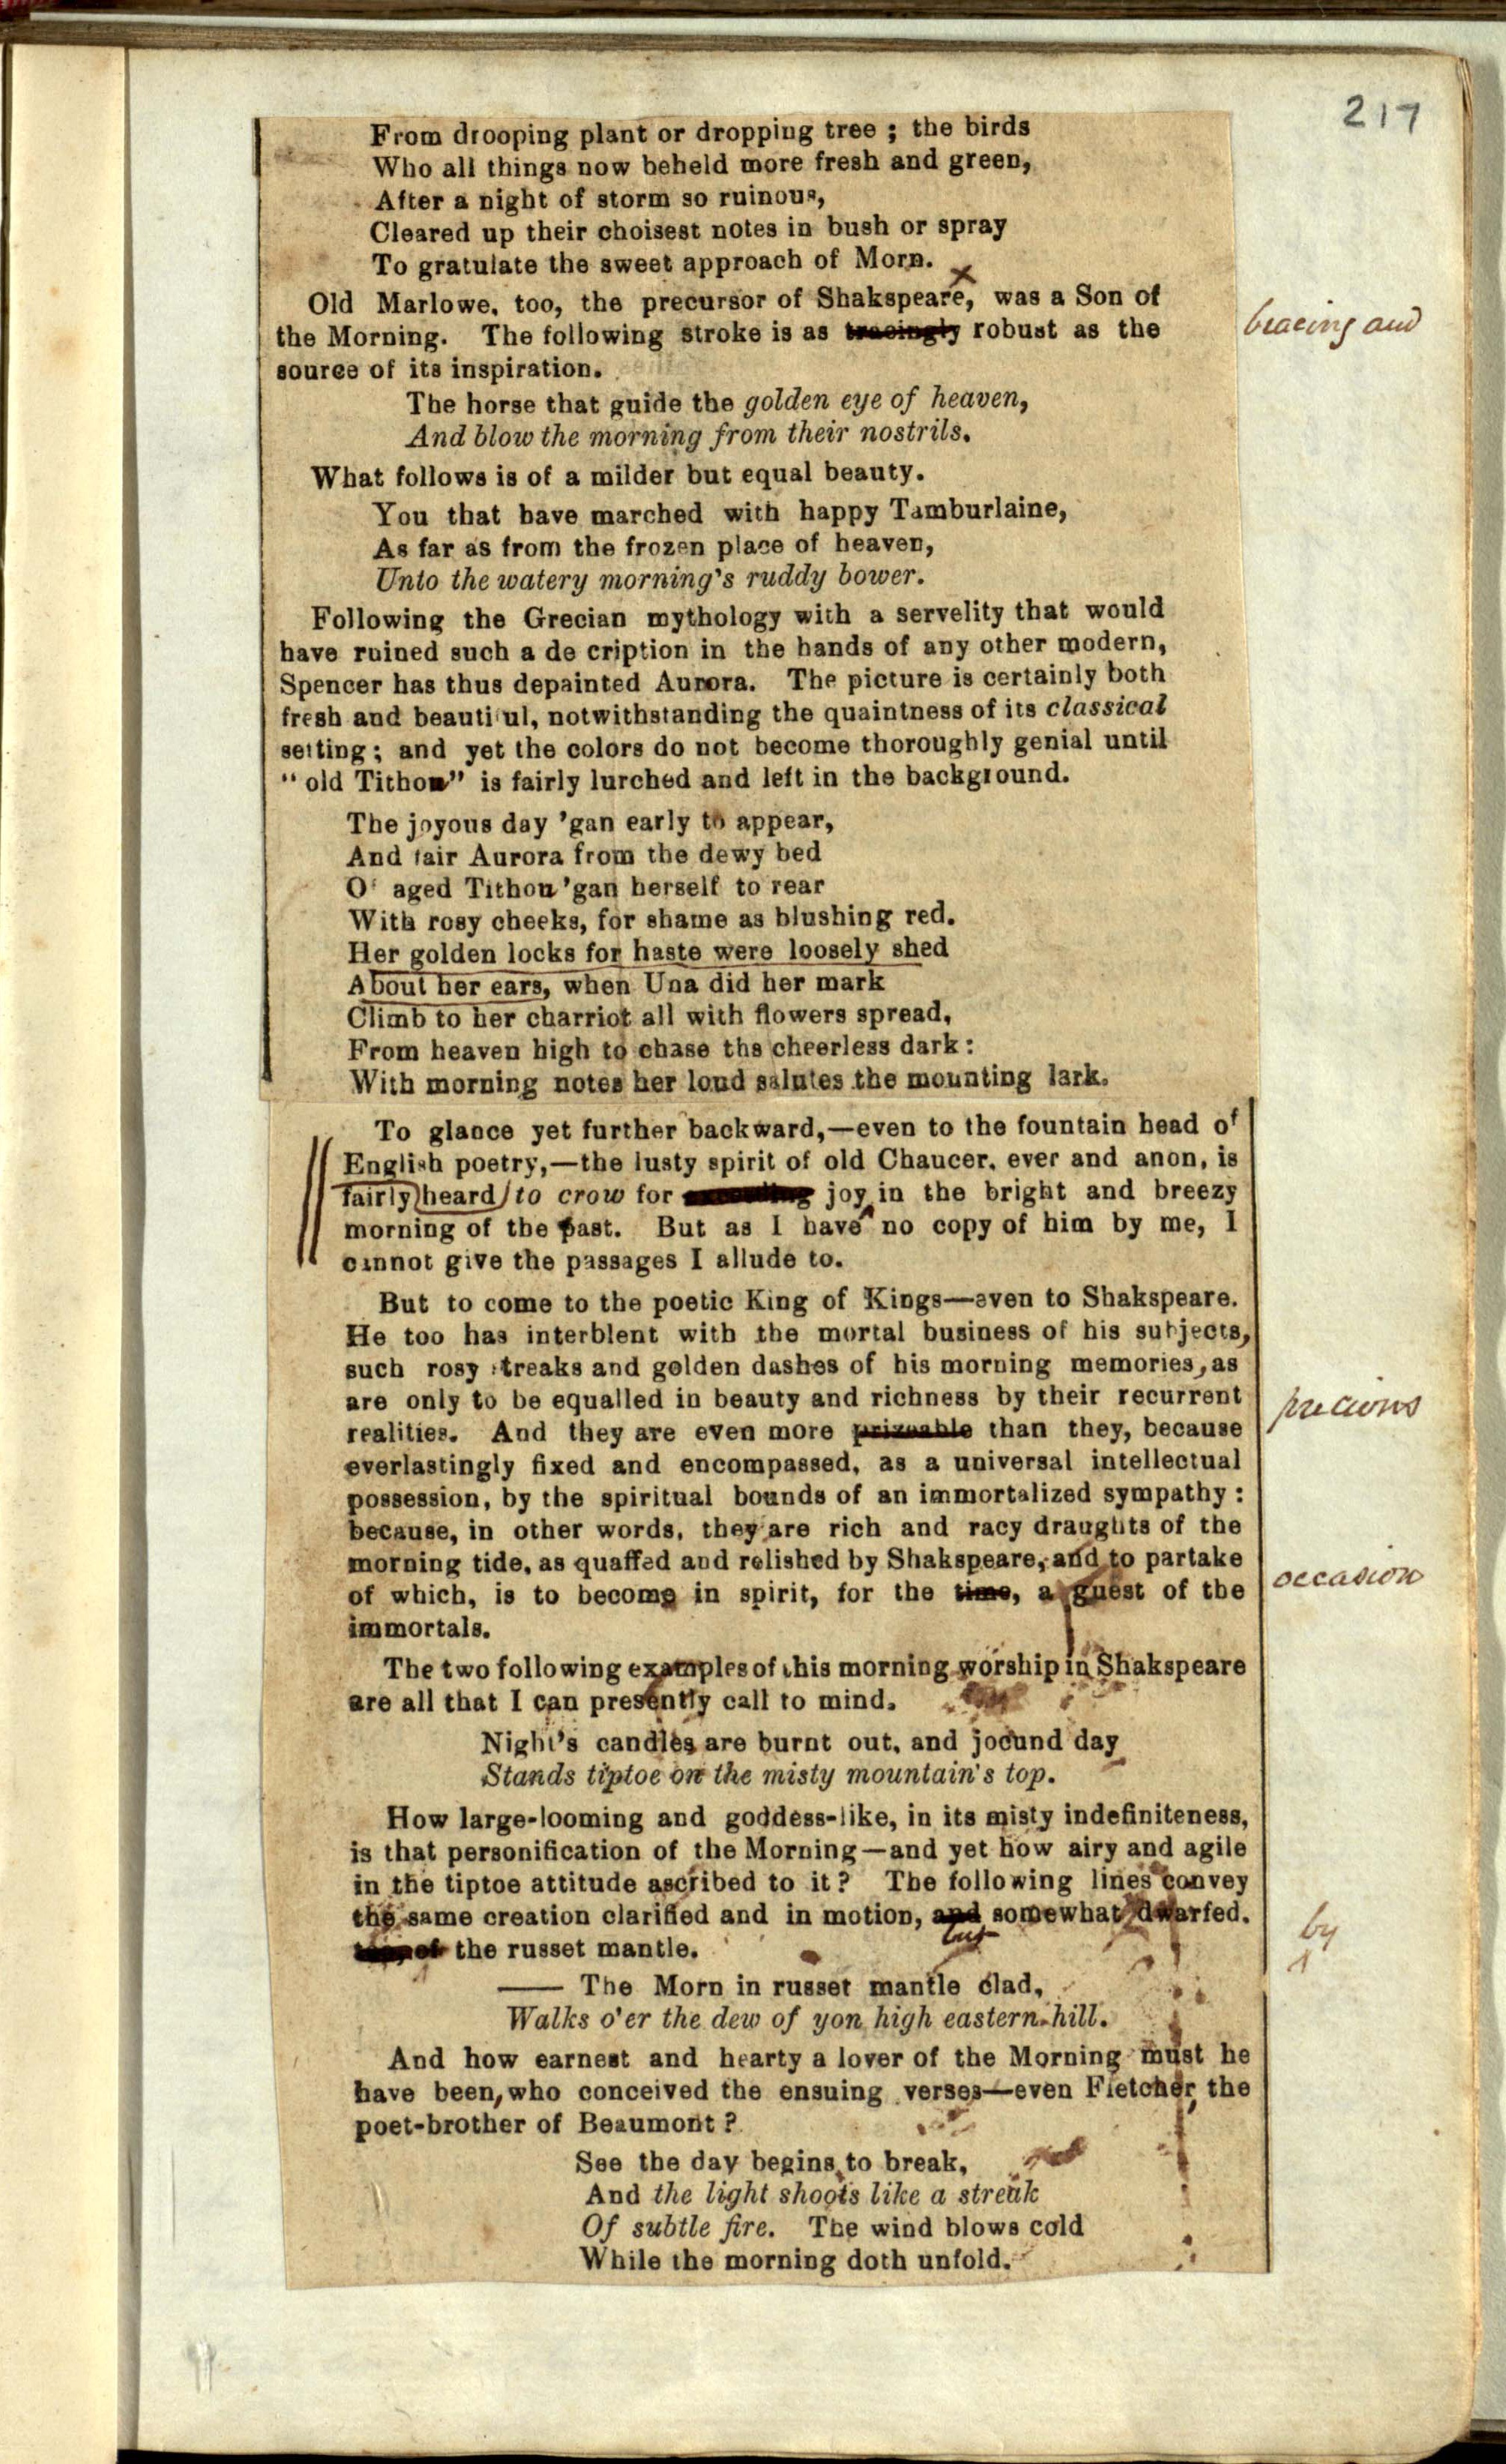 217
From drooping plant or dropping tree ; the birds
Who all things now beheld more fresh and green,
After a night of storm so ruinous,
Cleared up their choisest notes in bush or spray
To gratulate the sweet approach of Morn.
Old Marlowe, too, the precursor of Shakspeare, was a Son of
the Morning. The following stroke is as tracingly robust as the
bracing and
source of its inspiration.
The horse that guide the golden eye of heaven,
And blow the morning from their nostrils.
What follows is of a milder but equal beauty.
You that have marched with happy Tamburlaine,
As far as from the frozen place of heaven,
Unto the watery morning's ruddy bower.
Following the Grecian mythology with a servelity that would
have ruined such a de cription in the hands of any other modern,
Spencer has thus depainted Aurora. The picture is certainly both
fresh and beauti ul, notwithstanding the quaintness of its classical
setting; and yet the colors do not become thoroughly genial until
"old Tithon" is fairly lurched and left in the background.
The joyous day 'gan early to appear,
And fair Aurora from the dewy bed
O' aged Tithon 'gan herself to rear
With rosy cheeks, for shame as blushing red.
Her golden locks for haste were loosely shed
About her ears, when Una did her mark
Climb to her charriot all with flowers spread,
From heaven high to chase ths cheerless dark :
With morning notes her loud salutes the mounting lark.
To glance yet further backward,—even to the fountain head of
English poetry,—the lusty spirit of old Chaucer, ever and anon, is
fairly heard to crow for joy in the bright and breezy
morning of the past. But as I have no copy of him by me, I
cannot give the passages I allude to.
But to come to the poetic King of Kings—even to Shakspeare.
He too has interblent with the mortal business of his subjects,
such rosy streaks and golden dashes of his morning memories, as
are only to be equalled in beauty and richness by their recurrent
precious
realities. And they are even more prizeable than they, because
everlastingly fixed and encompassed, as a universal intellectual
possession, by the spiritual bounds of an immortalized sympathy :
because, in other words, they are rich and racy draughts of the
morning tide, as quaffed and relished by Shakspeare, and to partake
of which, is to become in spirit, for the time, a guest of the
occasion
immortals.
The two following examples of this morning worship in Shakspeare
are all that I can presently call to mind.
Night's candles are burnt out, and jocund day
Stands tiptoe on the misty mountain's top.
How large-looming and goddess-like, in its misty indefiniteness,
is that personification of the Morning—and yet how airy and agile
in the tiptoe attitude ascribed to it? The following lines convey
the same creation clarified and in motion, and somewhat dwarfed.
but
by
the russet mantle.
—— The Morn in russet mantle clad,
Walks o'er the dew of yon high eastern hill.
And how earnest and hearty a lover of the Morning must he
have been, who conceived the ensuing verses—even Fletcher, the
poet-brother of Beaumont ?
See the day begins to break,
And the light shoots like a streak
Of subtle fire. The wind blows cold
While the morning doth unfold.